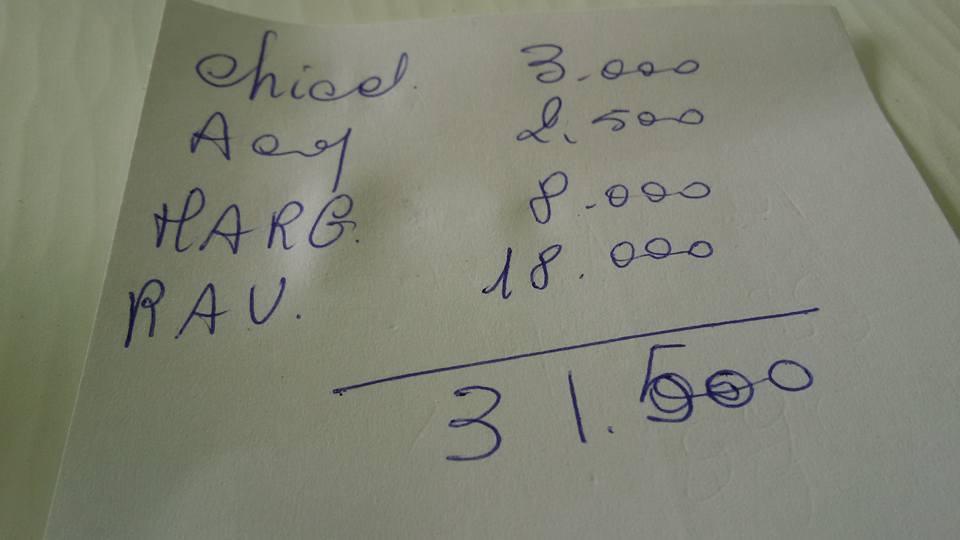 Chiad. 3.000
Acq 2.500
MARG. 8.000
RAV. 18.000
31.500